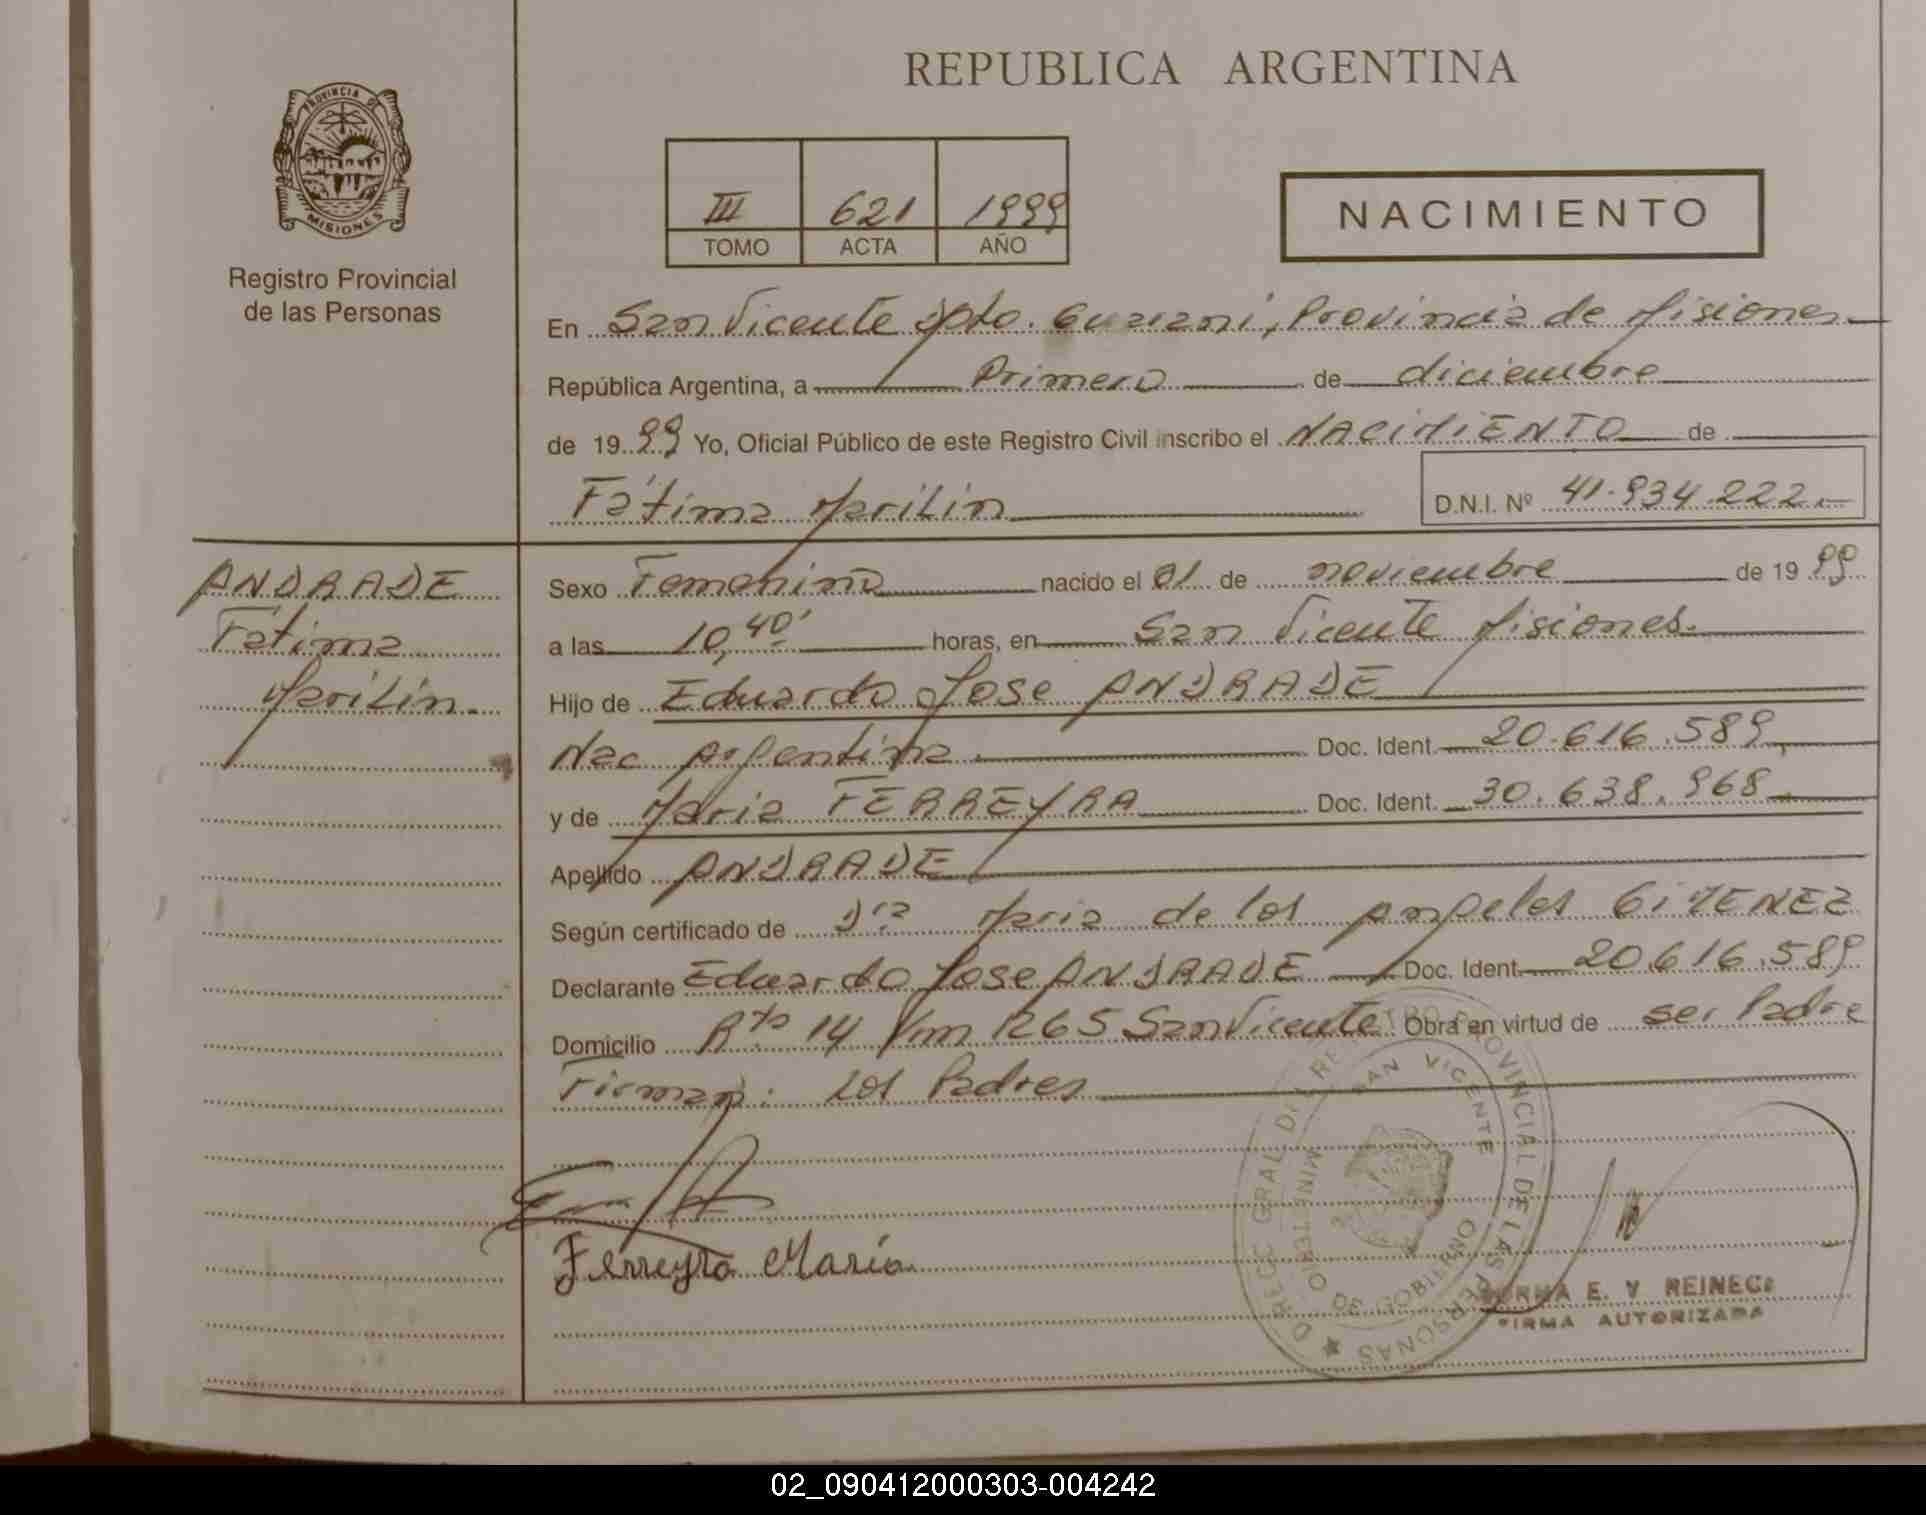 REPUBLICA ARGENTINA
PROVINCIA DE
MISIONES
Registro Provincial
de las Personas
III 621 1999
TOMO ACTA AÑO
NACIMIENTO
En San Vicente Dpto. Guarani, Provincia de Misiones
República Argentina, a Primero de diciembre
de 1999 Yo, Oficial Público de este Registro Civil inscribo el NACIMIENTO de
Fátima Marilin
D.N.I. Nº 41.934.222.-
ANDRADE
Fátima
Marilin.
Sexo Femenino nacido el 01 de noviembre de 1999
a las 10,40' horas, en San Vicente Misiones.
Hijo de Eduardo Jose ANDRADE
Nac Argentina Doc. Ident. 20.616.589,
y de Maria FERREYRA Doc. Ident. 30.638.968
Apellido ANDRADE
Según certificado de Dra Maria de los Angeles GIMENEZ
Declarante Eduardo Jose ANDRADE Doc. Ident. 20.616.589
Domicilio Rta 14 Km 1265 San Vicente Obra en virtud de ser Padre
Firman: Los Padres
Ferreyra María
DIRECC GRAL DEL REGISTRO PROVINCIAL DE LAS PERSONAS
SAN VICENTE
MINISTERIO DE GOBIERNO
NORMA E. V REINECK
FIRMA AUTORIZADA
02_090412000303-004242